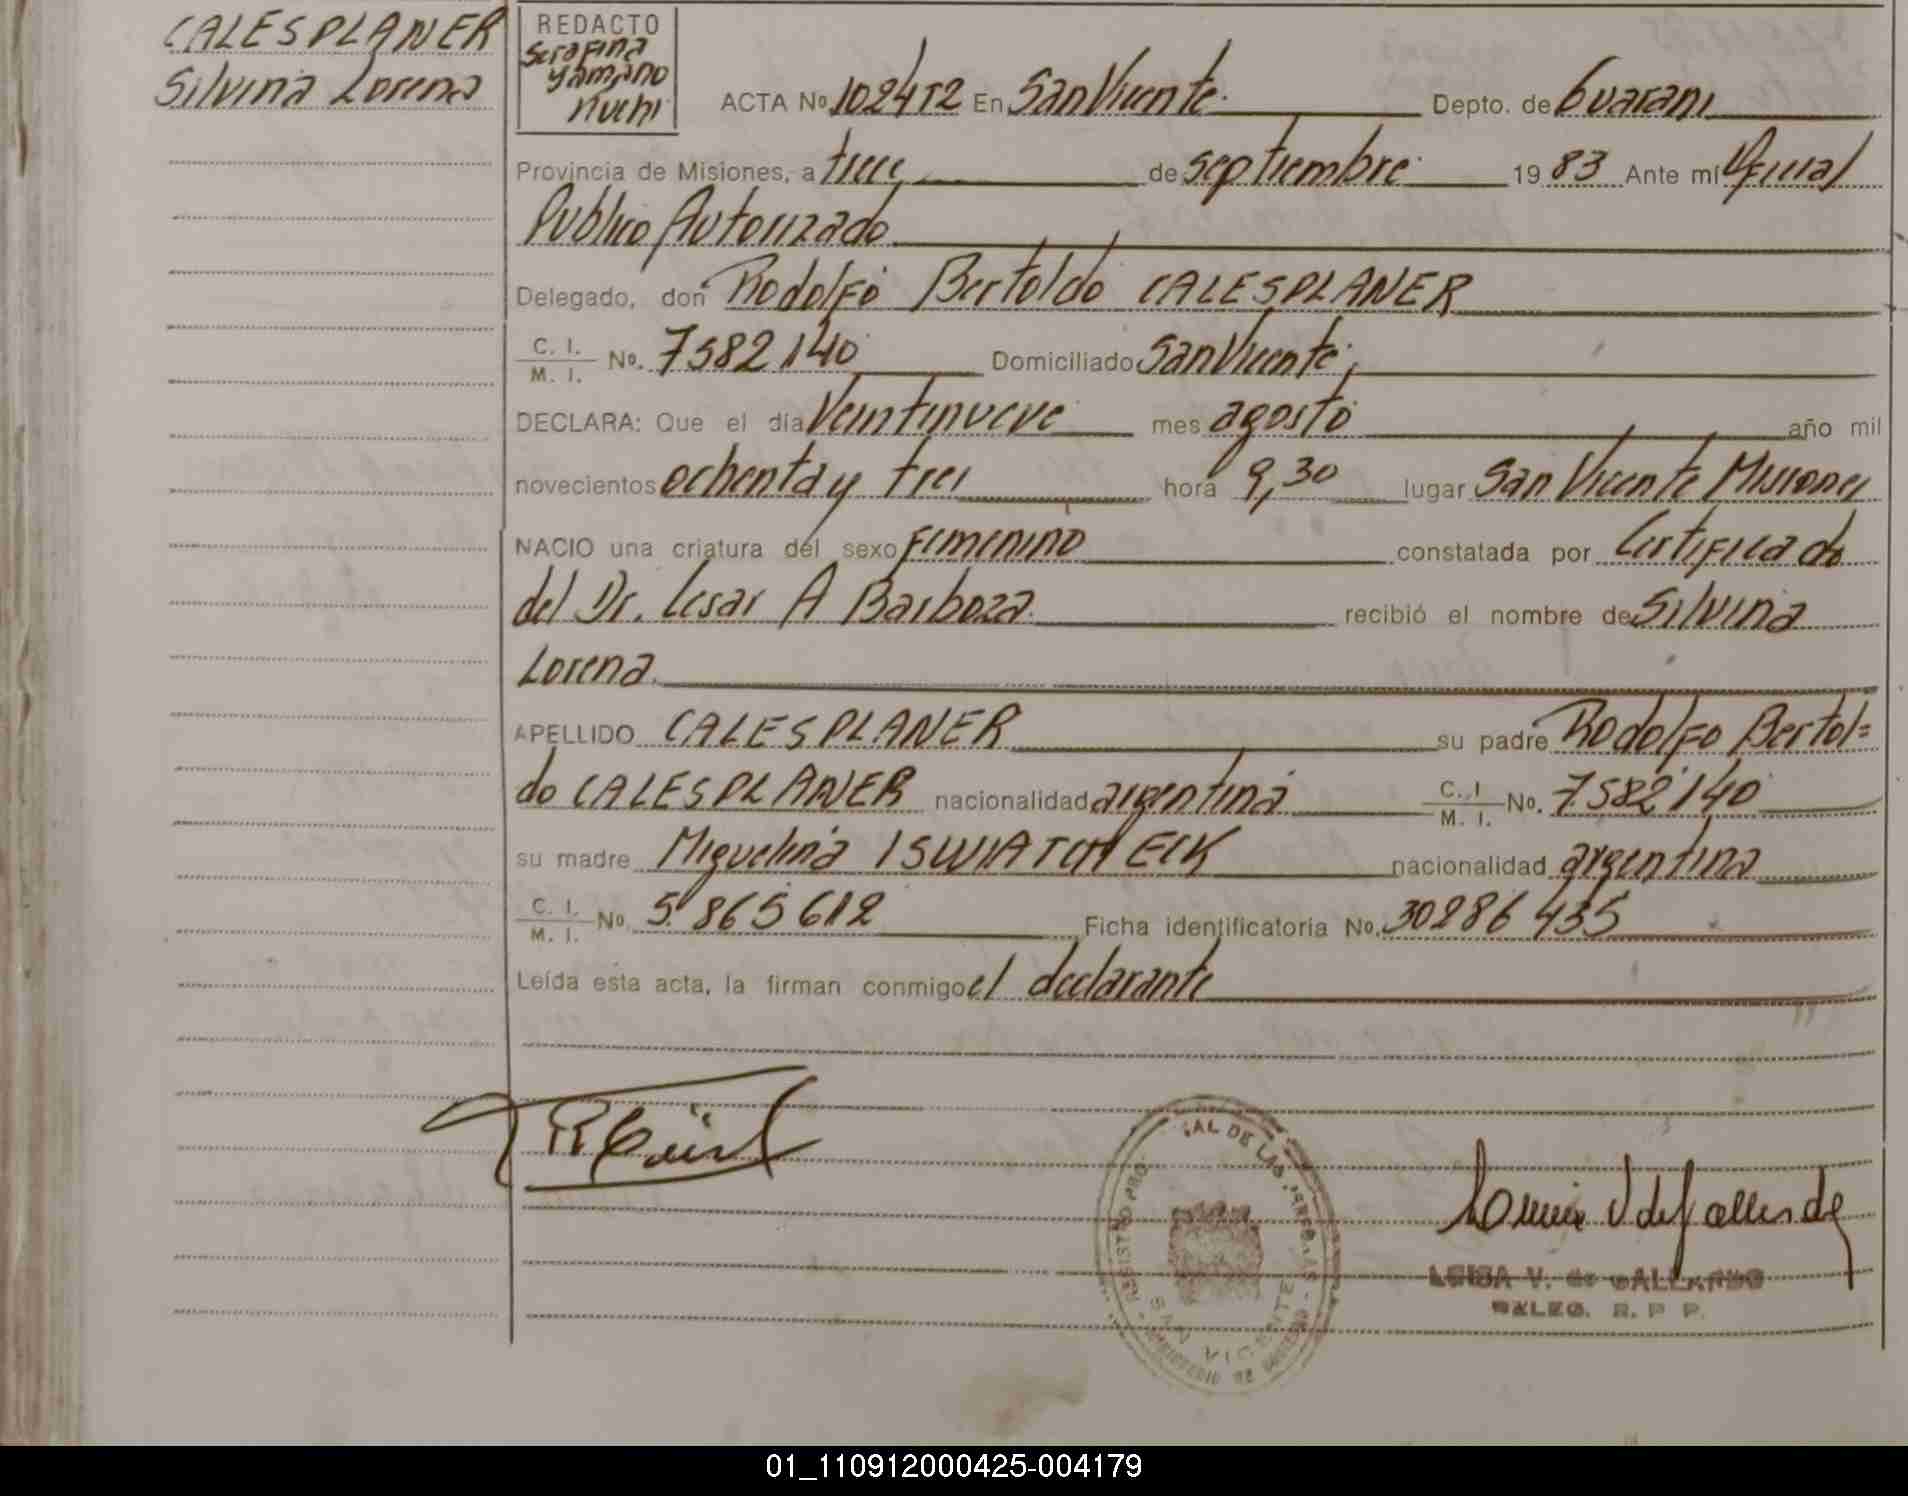 CALESPLANER
Silvina Lorena
REDACTO
Serafina
Yamano
Kuchi
ACTA No 1024T2 En San Vicente Depto. de Guarani
Provincia de Misiones, a trece de septiembre 1983 Ante mí Oficial
Publico Autorizado
Delegado, don Rodolfo Bertoldo CALESPLANER
C. I. / M. I. No. 7582140 Domiciliado San Vicente,
DECLARA: Que el día Veintinueve mes agosto año mil
novecientos ochenta y tres hora 9,30 lugar San Vicente Misiones
NACIO una criatura del sexo femenino constatada por Certificado
del Dr. Cesar A Barboza recibió el nombre de Silvina
Lorena
APELLIDO CALESPLANER su padre Rodolfo Bertol=
do CALESPLANER nacionalidad argentina C. I. / M. I. No. 7.582.140
su madre Miguelina ISWIATCHECK nacionalidad argentina
C. I. / M. I. No. 5.865612 Ficha identificatoria No. 30286435
Leída esta acta, la firman conmigo el declarante
LUISA V. de GALLARDO
DELEG. R. P P.
SAN VICENTE
01_110912000425-004179